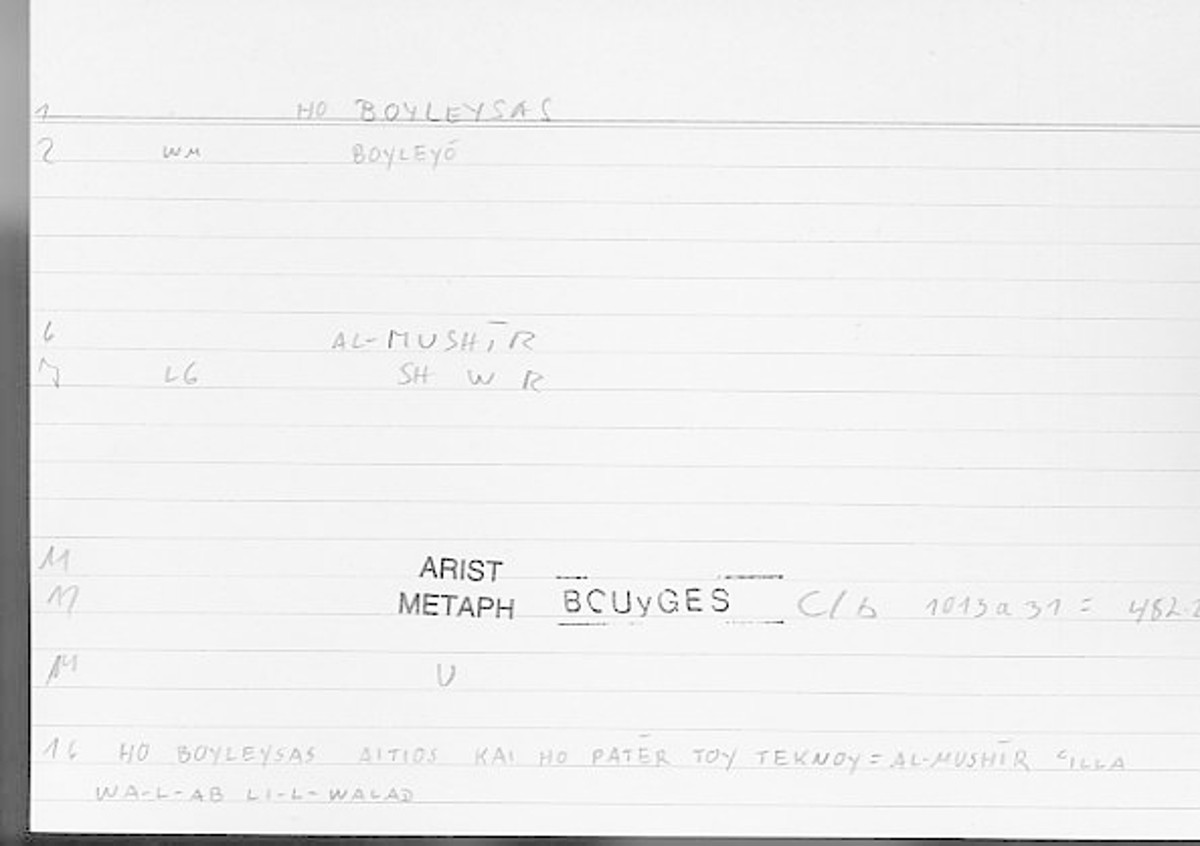 1 HO BOYLEYSAS
2 WM BOYLEYŌ
6 AL-MUSHĪR
7 LG SH W R
11 ARIST
METAPH BCUyGES C/b 1013a31 = 482.
14 U
16 HO BOYLEYSAS AITIOS KAI HO PATĒR TOY TEKNOY = AL-MUSHĪR ʿILLA
WA-L-AB LI-L-WALAD